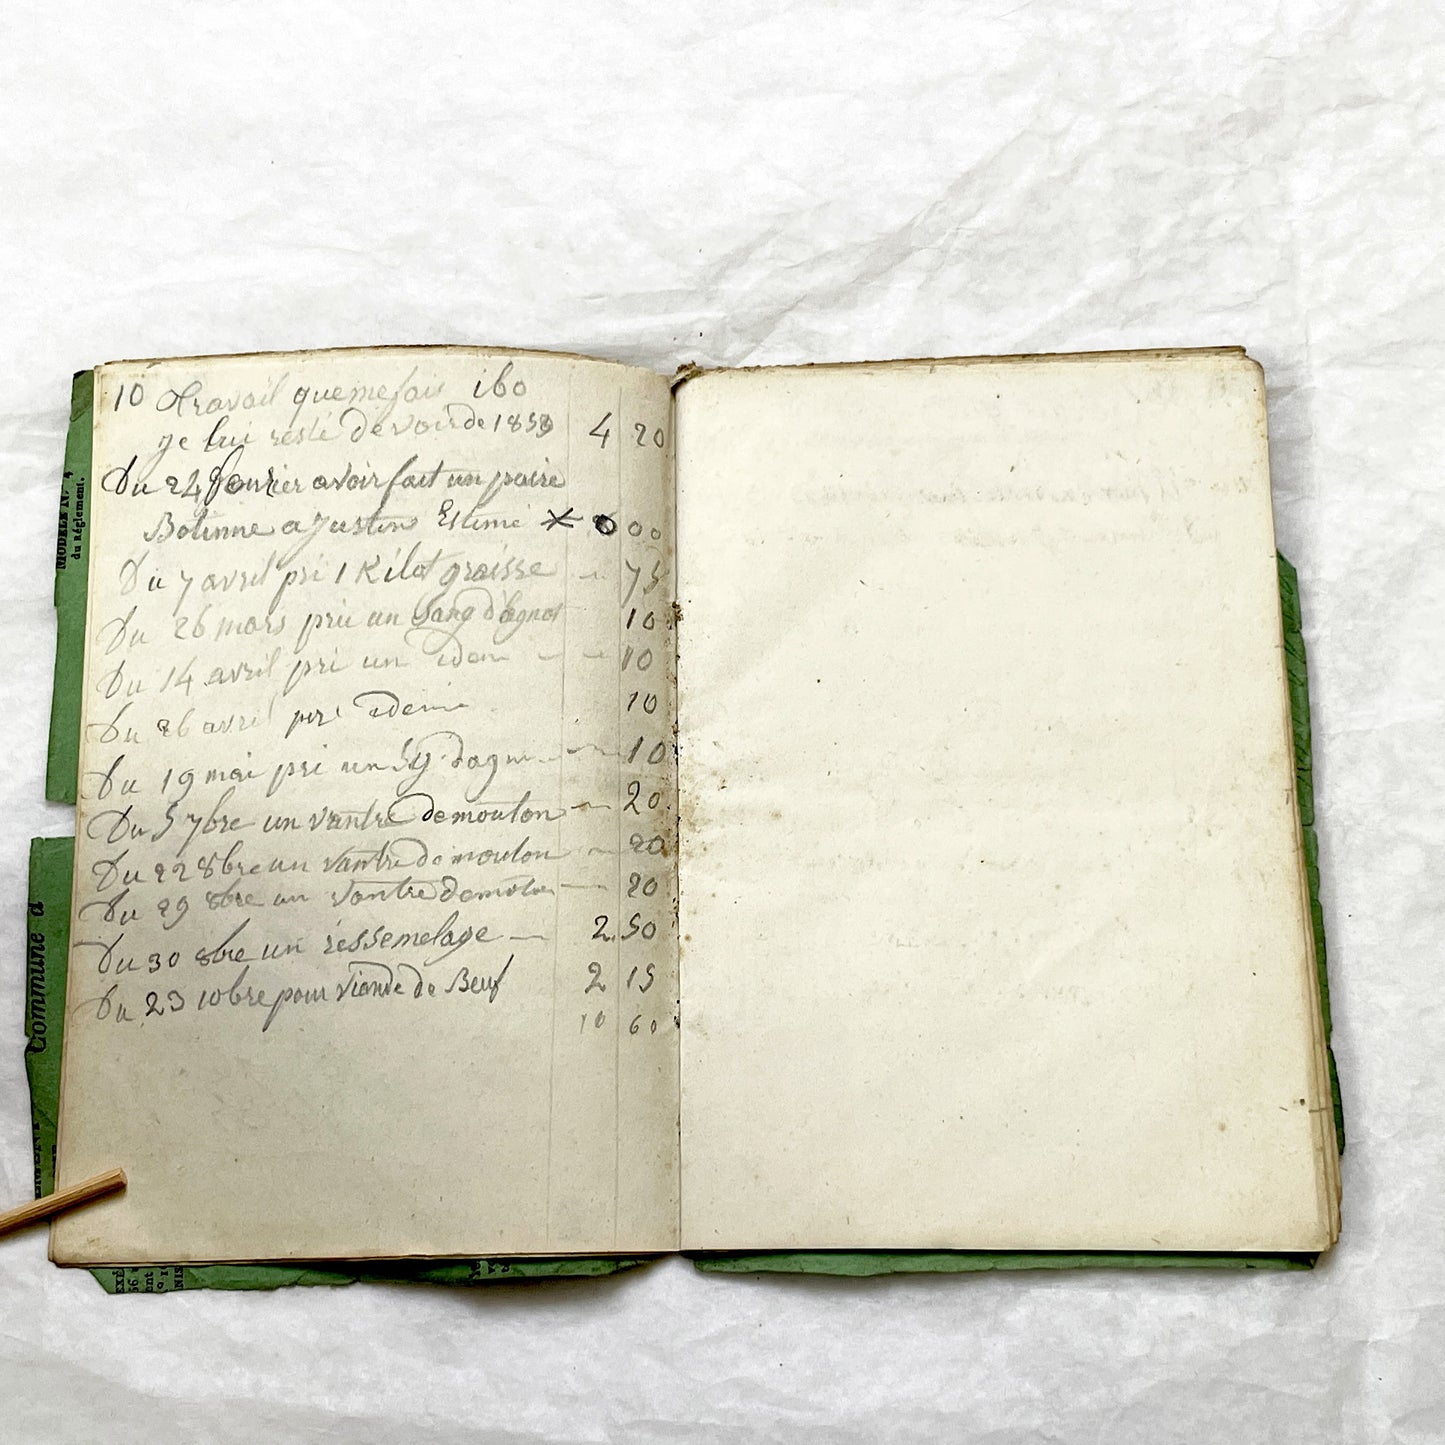 10 Travail que me fais ibo
je lui resté devoir de 1859 4 20
Du 24 fevrier avoir fait un paire
Botinne a Justin Estimé 00
Du 7 avril pri 1 Kilot graisse 75
Du 26 mars prie un Sang d'agnos 10
Du 14 avril pri un idem 10
Du 26 avril pri idem 10
Du 19 mai pri un Sg d'agn 10
Du 5 7bre un vantre de mouton 20
Du 22 8bre un vantre de mouton 20
Du 29 8bre un vantre de moton 20
Du 30 8bre un réssemelage 2 50
Du 23 10bre pour viande de Beuf 2 15
10 60
MODÈLE N.
du Réglement.
Commune d